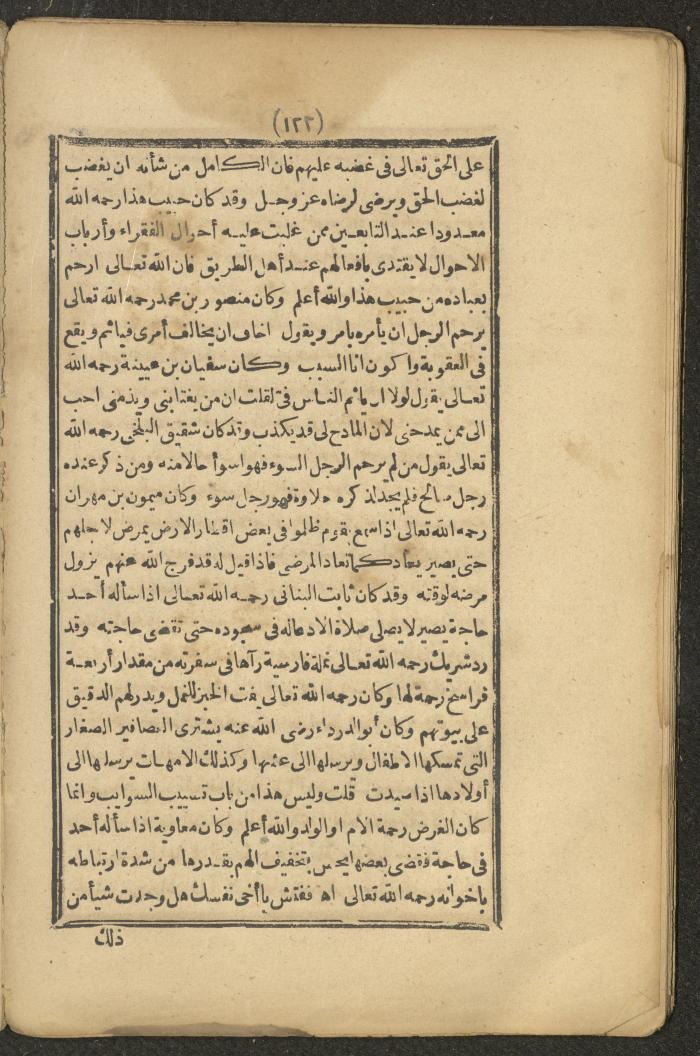 (١٢٢)
على الحق تعالى فى غضبه عليهم فان الكامل من شأنه ان يغضب
لغضب الحق ويرضى لرضاه عز وجل وقد كان حبيب هذا رحمه الله
معدودا عند التابعين ممن غلبت عليه أحوال الفقراء وأرباب
الاحوال لا يقتدى بافعالهم عند أهل الطريق فان الله تعالى ارحم
بعباده من حبيب هذا والله أعلم وكان منصور بن محمد رحمه الله تعالى
يرحم الرجل ان يأمره بامر ويقول اخاف ان يخالف أمرى فيأثم ويقع
فى العقوبة واكون انا السبب وكان سفيان بن عيينة رحمه الله
تعالى يقول لولا ان يأثم الناس فى لقلت ان من يغتابنى ويذمنى احب
الى ممن يمدحنى لان المادح لى قد يكذب وقد كان شقيق البلخى رحمه الله
تعالى يقول من لم يرحم الرجل السوء فهو اسوأ حالا منه ومن ذكر عنده
رجل صالح فلم يجد لذكره حلاوة فهو رجل سوء وكان ميمون بن مهران
رحمه الله تعالى اذا سمع بقوم ظلموا فى بعض اقطار الارض يمرض لاجلهم
حتى يصير يعاد كما تعاد المرضى فاذا قيل له قد فرج الله عنهم يزول
مرضه لوقته وقد كان ثابت البنانى رحمه الله تعالى اذا سأله أحد
حاجة يصير لا يصلى صلاة الا دعا له فى سجوده حتى تقضى حاجته وقد
رد شريك رحمه الله تعالى نملة فارسية رآها فى سفرته من مقدار أربعة
فراسخ رحمة لها وكان رحمه الله تعالى يفت الخبز للنمل ويدر لهم الدقيق
على بيوتهم وكان أبو الدرداء رضى الله عنه يشترى العصافير الصغار
التى تمسكها الاطفال ويرسلها الى عشها وكذلك الامهات يرسلها الى
أولادها اذا صيدت قلت وليس هذا من باب تسييب السوايب وانما
كان الغرض رحمة الام او الولد والله أعلم وكان معاوية اذا سأله أحد
فى حاجة فقضى بعضها يحس بتخفيف الهم بقدرها من شدة ارتباطه
باخوانه رحمه الله تعالى اه ففتش يا أخى نفسك هل وجدت شيأ من
ذلك